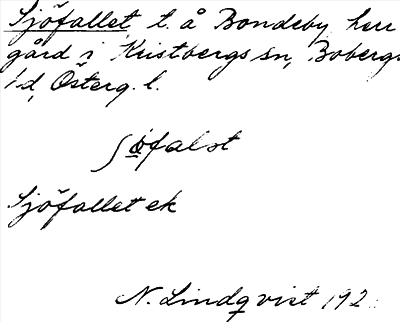 Sjöfallet, t. å Bondeby, herr
gård i Kristbergs sn, Bobergs
hd, Österg. l.
sjöfalst
Sjöfallet ek
N. Lindqvist 192